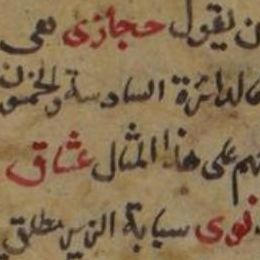 يقول حجازى هى
الدائرة السادسة والخمسون
هم على هذا المثال عشاق
نوى سبابة الزير مطلق